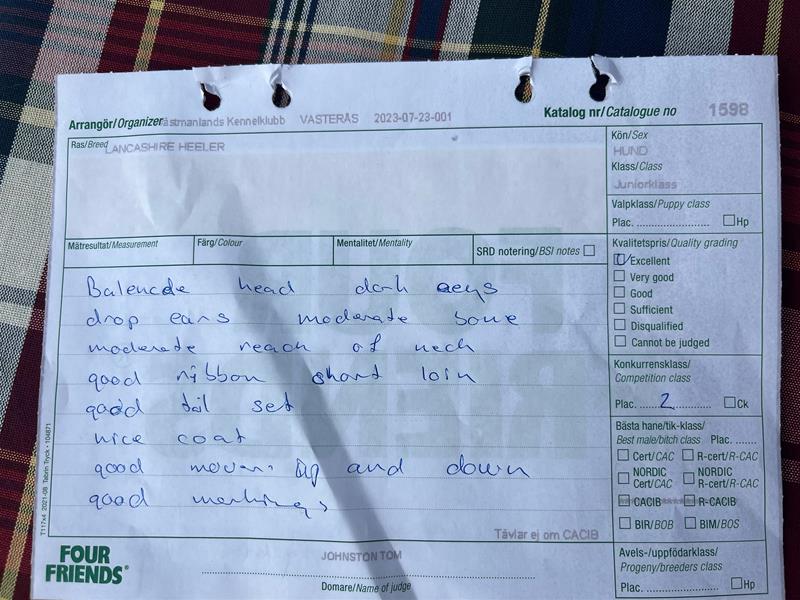 Arrangör/Organizer ästmanlands Kennelklubb VÄSTERÅS 2023-07-23-001
Katalog nr/Catalogue no 1598
Ras/Breed LANCASHIRE HEELER
Kön/Sex
HUND
Klass/Class
Juniorklass
Valpklass/Puppy class
Plac. Hp
Mätresultat/Measurement Färg/Colour Mentalitet/Mentality SRD notering/BSI notes
Kvalitetspris/Quality grading
Excellent
Very good
Good
Sufficient
Disqualified
Cannot be judged
Balencde head dark aeys
drop ears moderate bone
moderate reach of neck
good ribbon short loin
good tail set
nice coat
good moven up and down
good markings
Konkurrensklass/
Competition class
Plac. 2 Ck
Bästa hane/tik-klass/
Best male/bitch class Plac.
Cert/CAC R-cert/R-CAC
NORDIC Cert/CAC NORDIC R-cert/R-CAC
CACIB R-CACIB
BIR/BOB BIM/BOS
Tävlar ej om CACIB
Avels-/uppfödarklass/
Progeny/breeders class
Plac. Hp
T117x4 2021-08 Tabrin Tryck • 104871
FOUR
FRIENDS®
JOHNSTON TOM
Domare/Name of judge